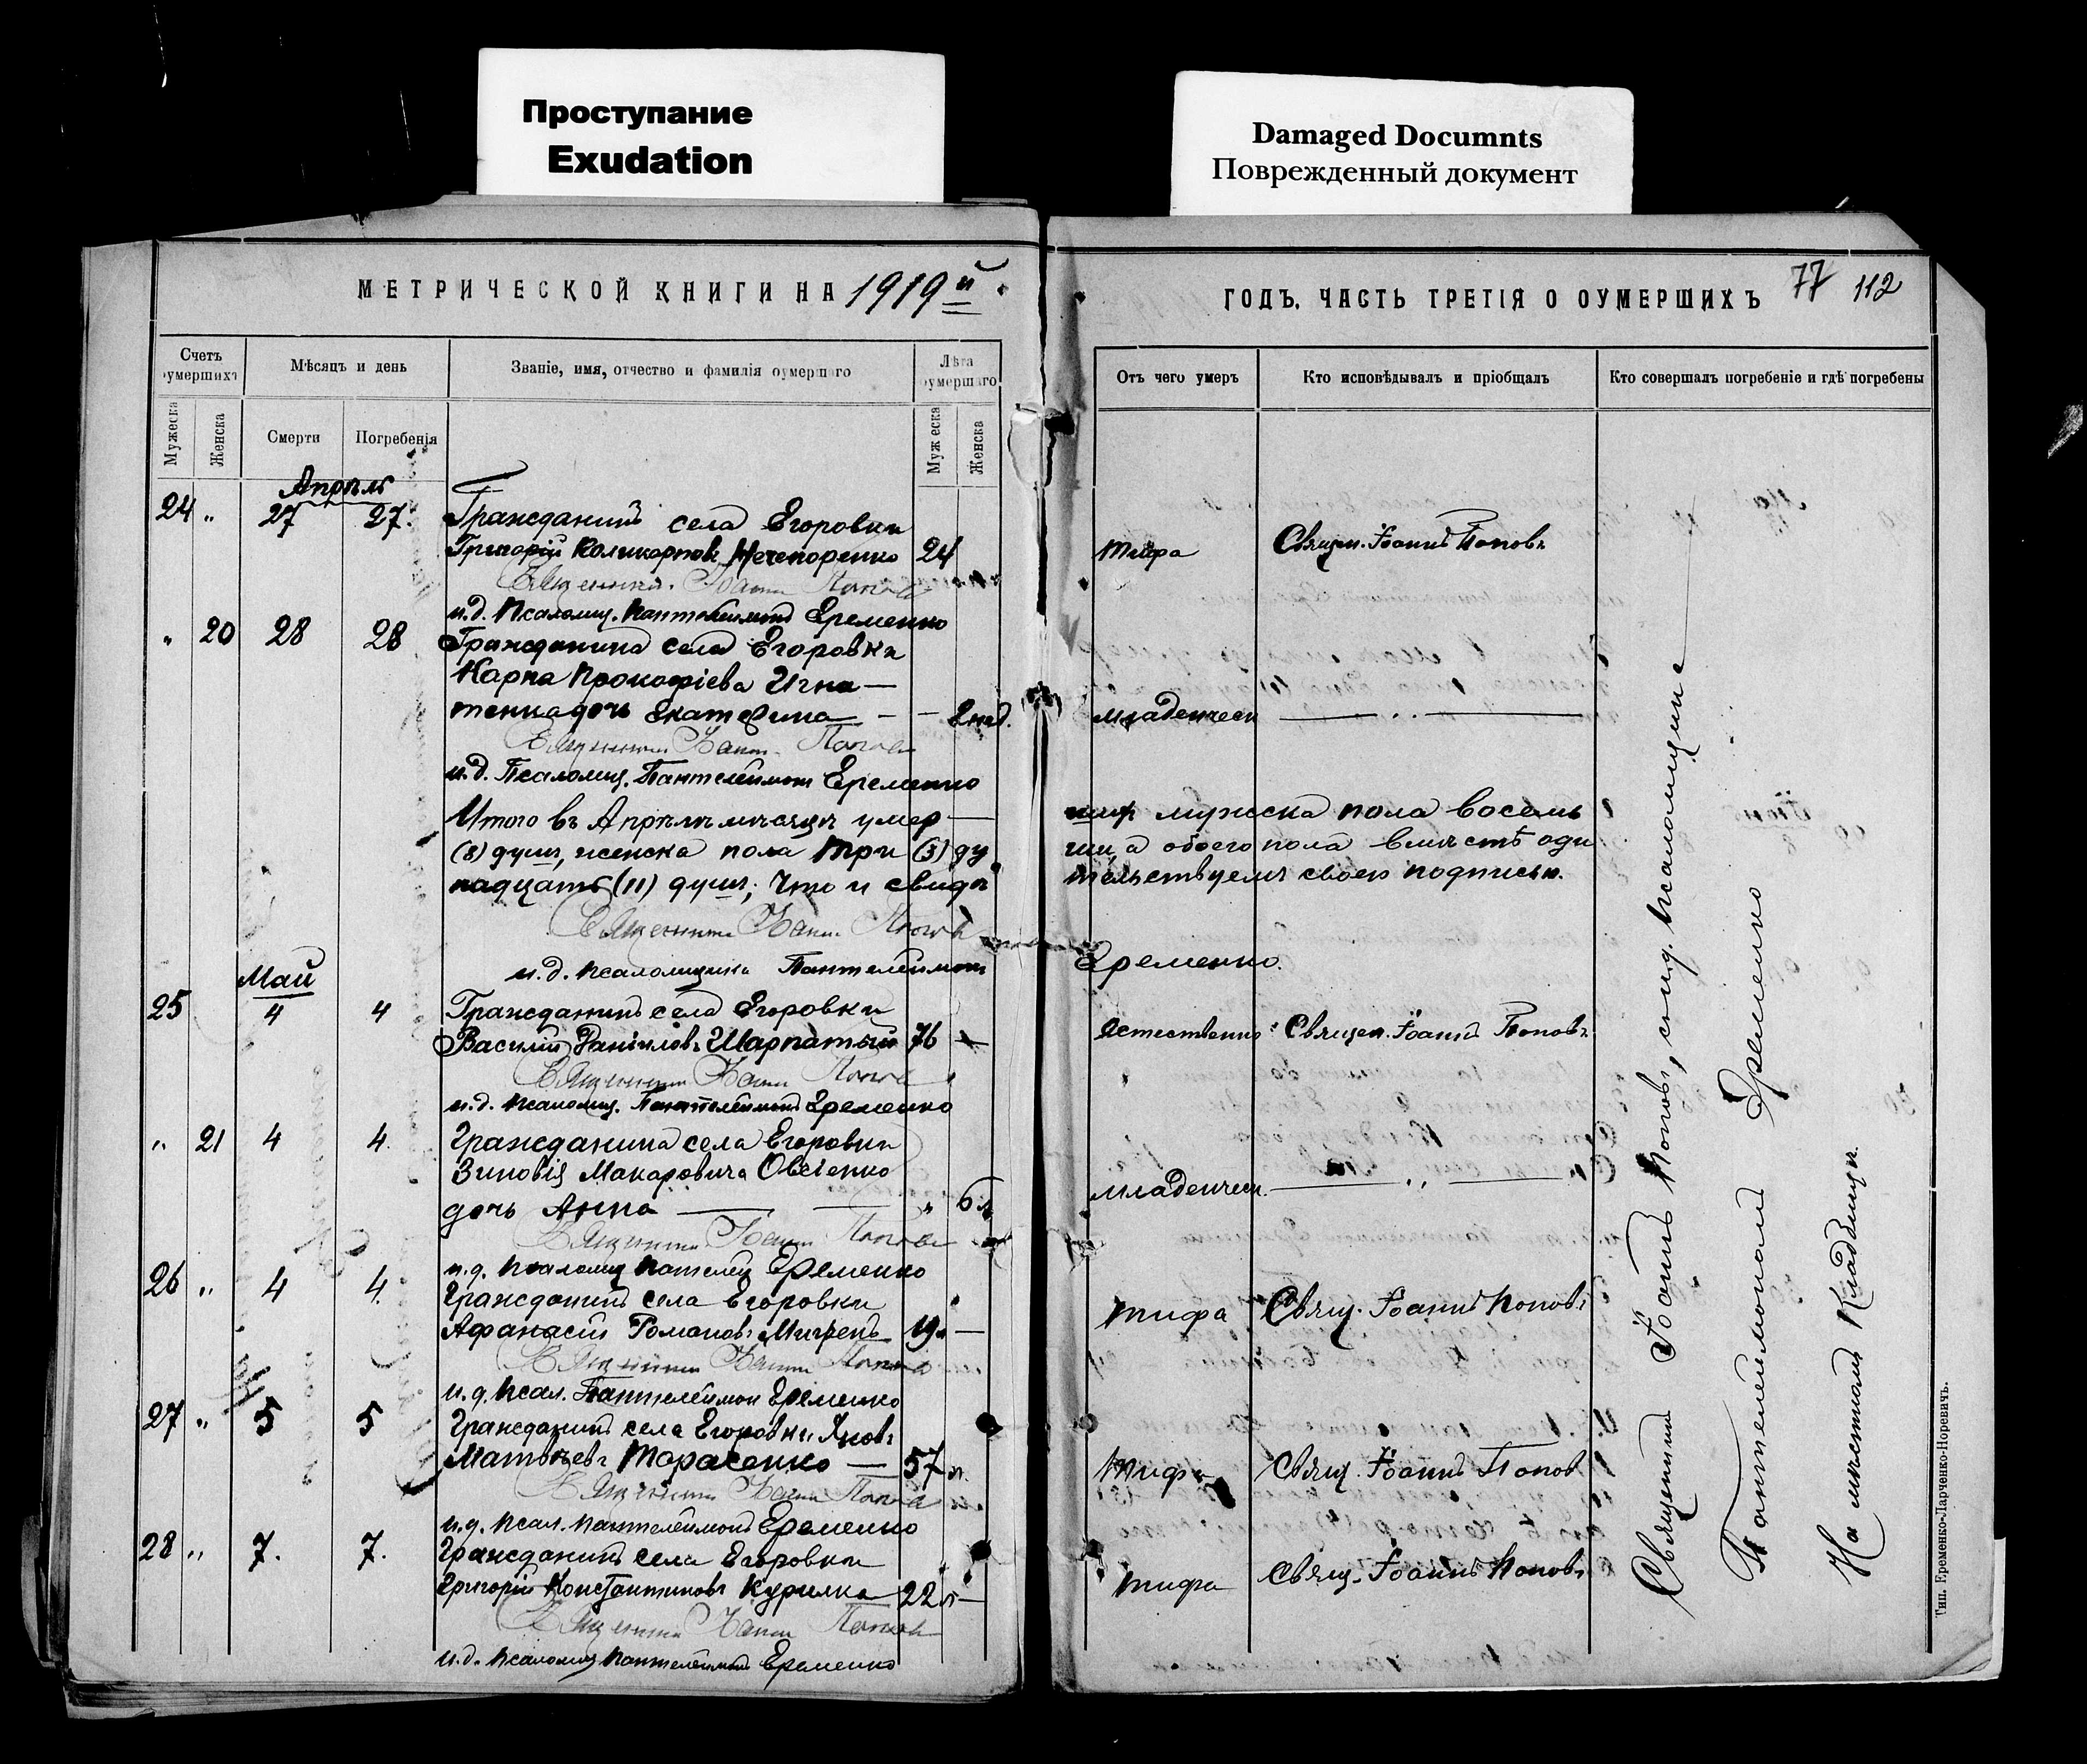 Проступание
Exudation
Damaged Documnts
Поврежденный документ
МЕТРИЧЕСКОЙ КНИГИ НА 1919й
ГОДЪ, ЧАСТЬ ТРЕТІЯ О ОУМЕРШИХЪ
77 112
Счетъ оумершихъ
Мѣсяцъ и день
Званіе, имя, отчество и фамилія оумершаго
Лѣта оумершаго
Отъ чего умеръ
Кто исповѣдывалъ и пріобщалъ
Кто совершалъ погребеніе и гдѣ погребены
Мужеска
Женска
Смерти
Погребенія
Муж еска
Женска
Апрѣль
24 " 27 27. Гражданинъ села Егоровки
Григорій Поликарповъ Нечепоренко 24 тифа Священ. Іоаннъ Поповъ
Священникъ Іоаннъ Поповъ
и.д. Псаломщ. Пантелеимонъ Еременко
" 20 28 28 Гражданина села Егоровки
Карпа Прокофіева Игна—
тенка дочь Екатерина — - - 2 нед. младенческ ——— " ———
Священникъ Іоаннъ Поповъ
и.д. Псаломщ. Пантелеимонъ Еременко
Итого въ Апрѣлѣ мѣсяцѣ умер— мужска пола восемь
(8) душъ, женска пола три (3) ду шъ, а обоего пола вмѣстѣ оди
надцать (11) душъ; Что и свидѣ тельствуемъ своею подписью.
Священникъ Іоаннъ Поповъ
и.д. псаломщика Пантелеимонъ Еременко.
Май
25 4 4 Гражданинъ села Егоровки
Василій Даніиловъ Шарпатый 76 — Естественно Священ. Іоаннъ Поповъ
Священникъ Іоаннъ Поповъ
и.д. псаломщ. Пантелеимонъ Еременко
" 21 4 4. Гражданина села Егоровки
Зиновія Макаровича Овсіенко
дочь Анна — — " 6 м младенческ. ——— " ———
Священникъ Іоаннъ Поповъ
и.д. псаломщ Пателеи Еременко
26 " 4 4. Гражданинъ села Егоровки
Афанасій Романовъ 19 — тифа Свящ. Іоаннъ Поповъ
Священникъ Іоаннъ Поповъ
и.д. псал. Пантелеимон Еременко
27 " 5 5 Гражданинъ села Егоровки Яковъ
Матвѣевъ Тарасенко — 57 л. тифа Свящ. Іоаннъ Попов
Священникъ Іоаннъ Поповъ
и.д. псал. Пантелеимонъ Еременко
28 " 7. 7. Гражданинъ села Егоровки
Григорій Константиновъ Курилка 22 л — тифа Свящ. Іоаннъ Поповъ
Священникъ Іоаннъ Поповъ
и.д. псаломщ Пантелеимонъ Еременко
Священникъ Іоаннъ Поповъ, съ и.д. псаломщика
Пантелеимономъ Еременко
На мѣстномъ Кладбищѣ.
Тип. Еременко-Ларченко-Норевичъ.